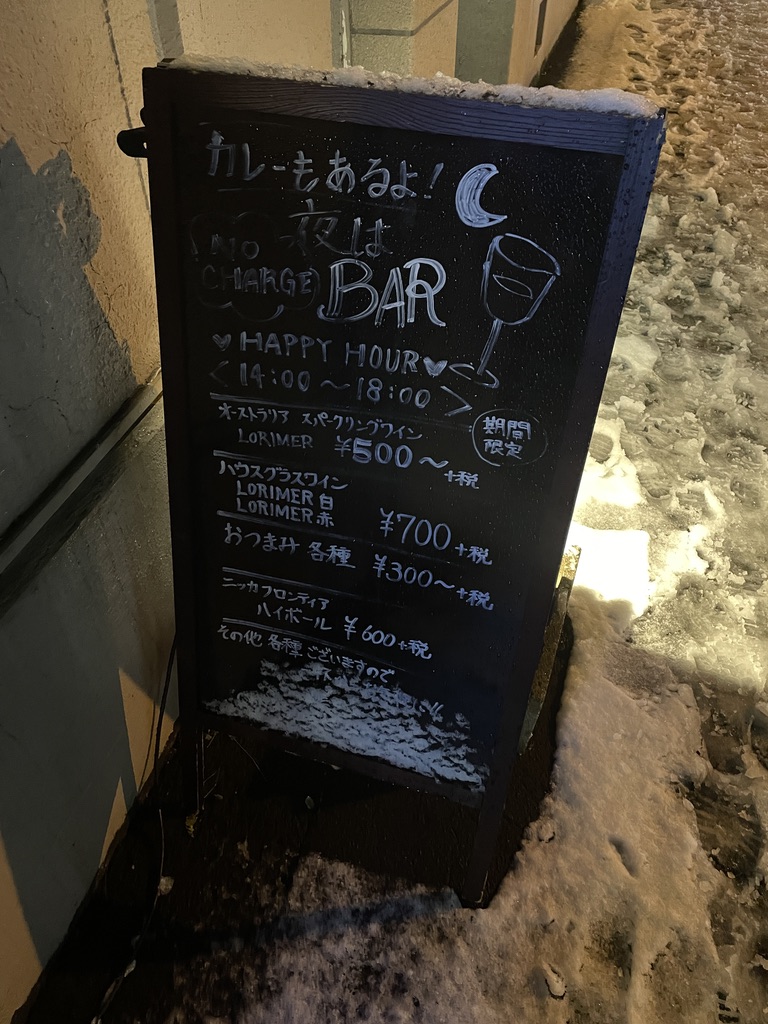 カレーもあるよ!
夜は
NO
CHARGE
BAR
♥ HAPPY HOUR ♥
< 14:00 ~ 18:00 >
オーストラリア スパークリングワイン
LORIMER ¥500~ +税
期間
限定
ハウスグラスワイン
LORIMER 白
LORIMER 赤
¥700 +税
おつまみ 各種 ¥300~ +税
ニッカ フロンティア
ハイボール ¥600+税
その他 各種ございますので